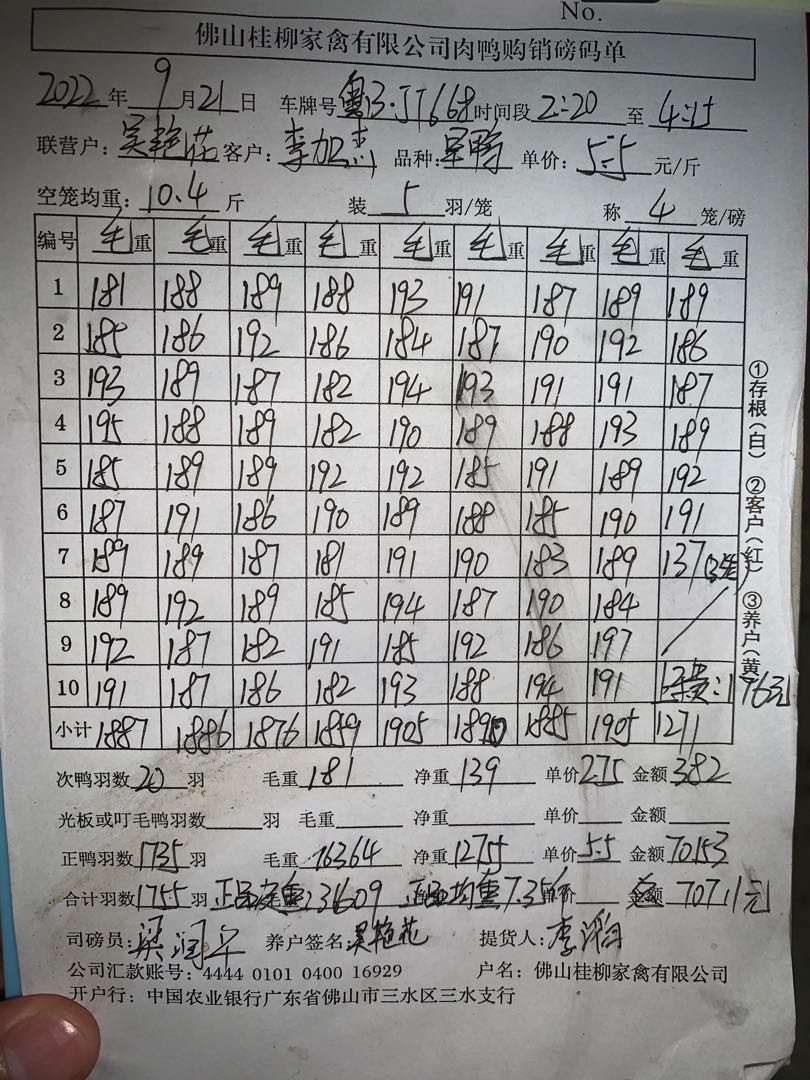 No.
佛山桂柳家禽有限公司肉鸭购销磅码单
2022年 9月21日 车牌号 粤B·JT668 时间段 2:20 至 4:15
联营户:吴艳花 客户:李加杰 品种: 单价:5.5 元/斤
空笼均重:10.4 斤 装 5 羽/笼 称 4 笼/磅
编号 毛重 毛重 毛重 毛重 毛重 毛重 毛重 毛重 毛重
1 181 188 189 188 193 191 187 189 189
2 185 186 192 186 184 187 190 192 186
3 193 189 187 182 194 193 191 191 187
4 195 188 189 182 190 189 188 193 189
5 185 189 189 192 192 185 191 189 192
6 187 191 186 190 189 188 185 190 191
7 189 189 187 181 191 190 183 189 137(3笼)
8 189 192 189 185 194 187 190 184
9 192 187 182 191 185 192 186 197
10 191 187 186 182 193 188 194 191 176元
小计 1887 1886 1876 1859 1905 1890 1885 1905 1271
次鸭羽数 20 羽 毛重 181 净重 139 单价 2.75 金额 382
光板或叮毛鸭羽数 羽 毛重 净重 单价 金额
正鸭羽数 1735 羽 毛重 16364 净重 12755 单价 5.5 金额 70153
合计羽数 1755 羽 毛重 3609 正品均重 7.35 单价 金额 70711元
司磅员: 养户签名:吴艳花 提货人:
公司汇款账号:4444 0101 0400 16929 户名:佛山桂柳家禽有限公司
开户行:中国农业银行广东省佛山市三水区三水支行
①存根(白) ②客户(红) ③养户(黄)